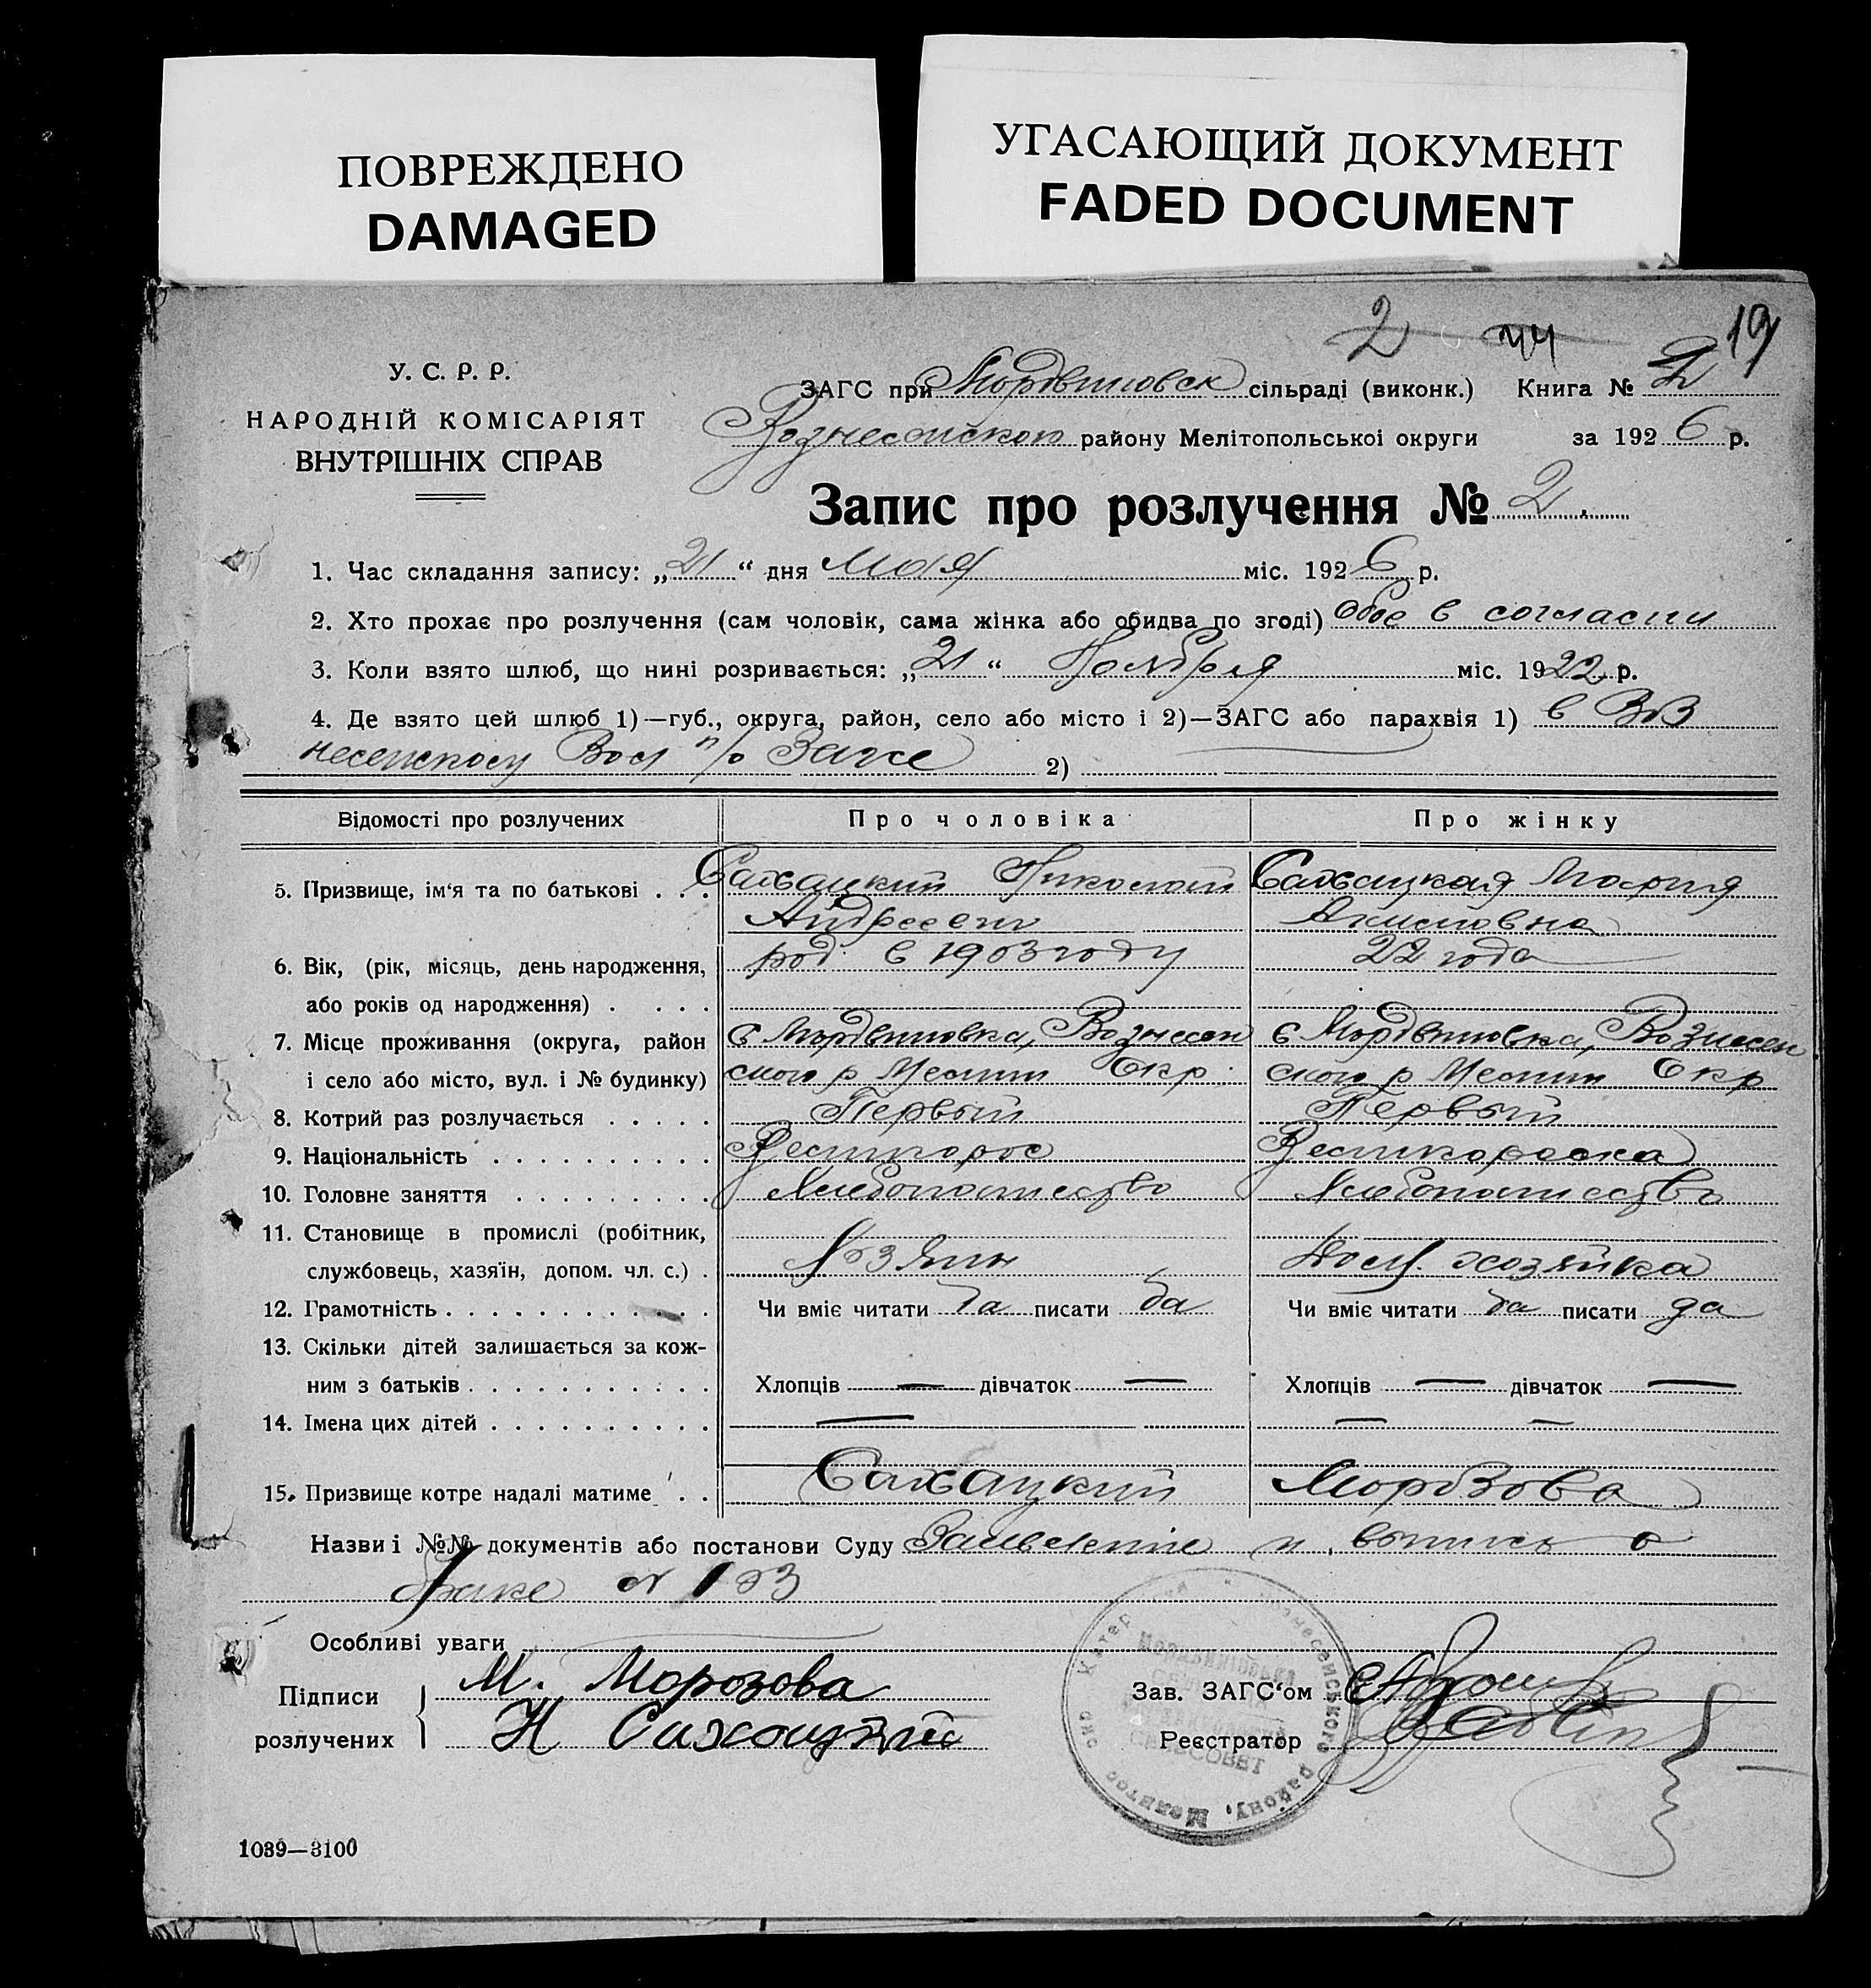 ПОВРЕЖДЕНО
DAMAGED
УГАСАЮЩИЙ ДОКУМЕНТ
FADED DOCUMENT
2 44 19
У. С. Р. Р.
НАРОДНІЙ КОМІСАРІЯТ
ВНУТРІШНІХ СПРАВ
ЗАГС при Мордвиновск сільраді (виконк.) Книга № 2
Вознесенского району Мелітопольської округи за 1926 р.
Запис про розлучення № 2.
1. Час складання запису: „21“ дня Мая міс. 1926 р.
2. Хто прохає про розлучення (сам чоловік, сама жінка або обидва по згоді) Обое в согласии
3. Коли взято шлюб, що нині розривається: „21“ Ноября міс. 1922 р.
4. Де взято цей шлюб 1)—губ., округа, район, село або місто і 2)—ЗАГС або парахвія 1) в Воз
несенском Вол п/о Загсе 2)
Відомості про розлучених Про чоловіка Про жінку
5. Призвище, ім‘я та по батькові . . . Сахацкий Николай Сахацкая Мария
Андреевич Акимовна
6. Вік, (рік, місяць, день народження, род. в 1903 году 22 года
або років од народження) . . . .
7. Місце проживання (округа, район с Мордвиновка, Вознесен с Мордвиновка, Вознесен
і село або місто, вул. і № будинку) ского р Мелит Окр. ского р Мелит Окр
8. Котрий раз розлучається . . . . . Первый Первый
9. Національність . . . . . . . . . . Великорос Великороска
10. Головне заняття . . . . . . . . . Хлебопашество Хлебопашество
11. Становище в промислі (робітник,
службовець, хазяїн, допом. чл. с.) . Хозяин Дом. хозяйка
12. Грамотність . . . . . . . . . . . . Чи вміє читати да писати да Чи вміє читати да писати да
13. Скільки дітей залишається за кож-
ним з батьків . . . . . . . . . . . Хлопців — дівчаток — Хлопців — дівчаток —
14. Імена цих дітей . . . . . . . . . . — — —
15. Призвище котре надалі матиме . . Сахацкий Морозова
Назви і №№ документів або постанови Суду Заявление и выпись о
браке № 133
Особливі уваги
Підписи М. Морозова Зав. ЗАГС‘ом
розлучених Н Сахацкий Реєстратор
СЕЛЬСОВЕТ
району, Мелитоп
1039—3100